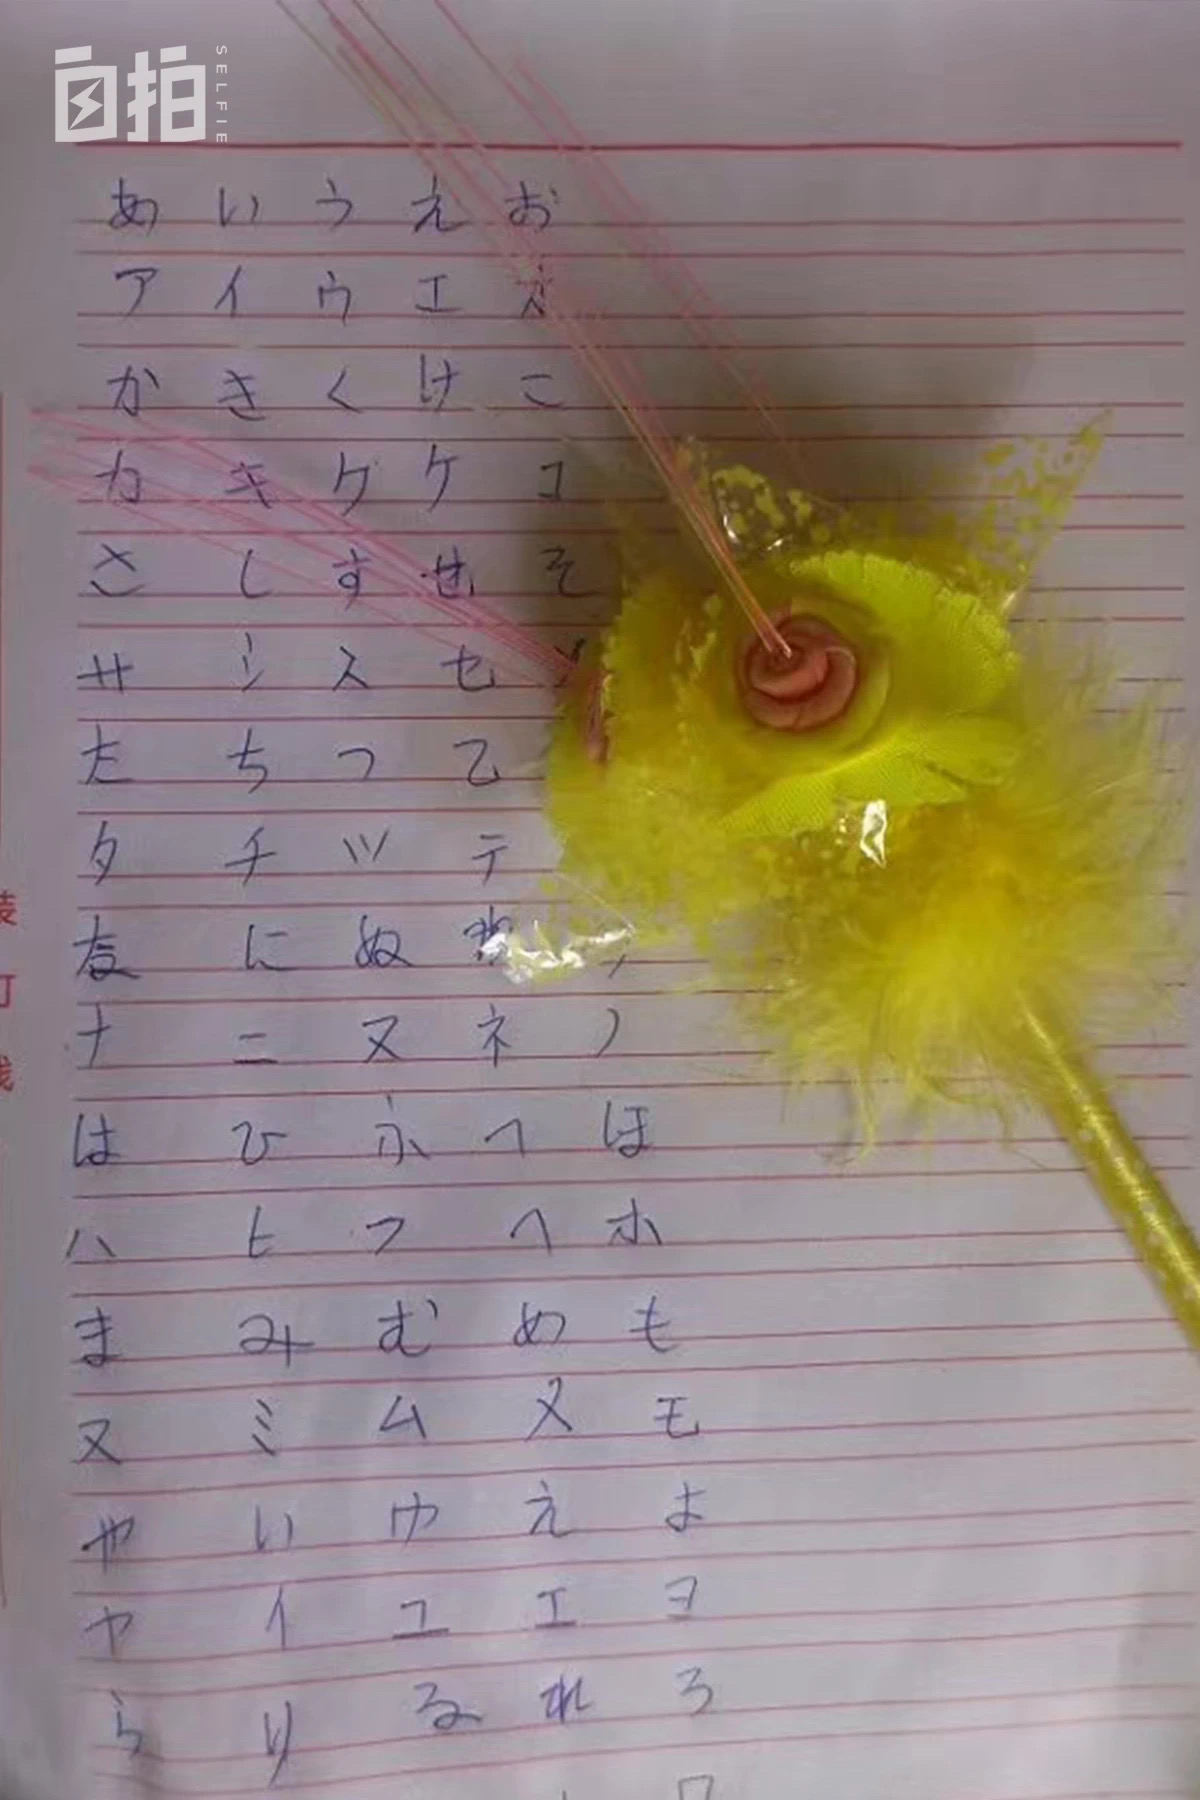 自拍 SELFIE
あ い う え お
ア イ ウ エ オ
か き く け こ
カ キ ケ ケ コ
さ し す せ そ
サ シ ス セ ソ
た ち つ て
タ チ ツ テ
な に ぬ ね
ナ ニ ヌ ネ ノ
は ひ ふ へ ほ
ハ ヒ フ ヘ ホ
ま み む め も
ヌ ミ ム メ モ
や い ゆ え よ
ヤ イ ユ エ ヨ
ら り る れ ろ
装
订
线